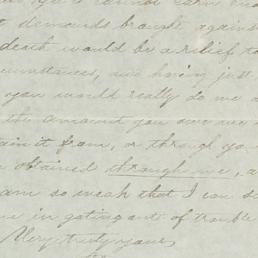 demands brought against
death would be a relief to
circumstances, and having just
you would really do me a
the amount you owe me
it from, or through you
obtained through me, a
am so weak that I can
me in geting out of trouble
Very truly yours,